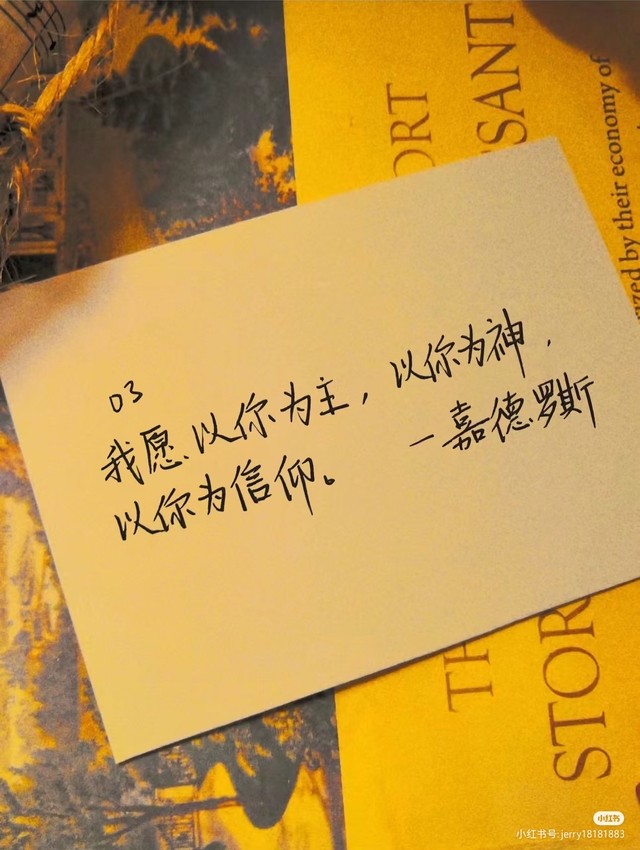 03
我愿以你为主，以你为神，
以你为信仰。 —嘉德罗斯
ORT
SSANT
ized by their economy of
TH
STOR
小红书
小红书号: jerry18181883